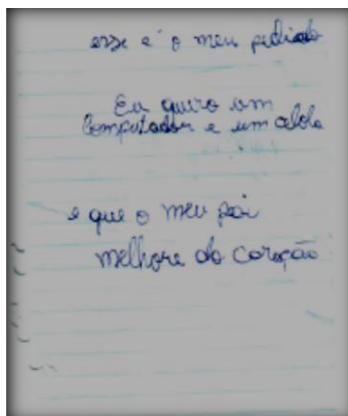 esse é o meu pedido
Eu quero um
computador e um celola
e que o meu pai
melhore do coração